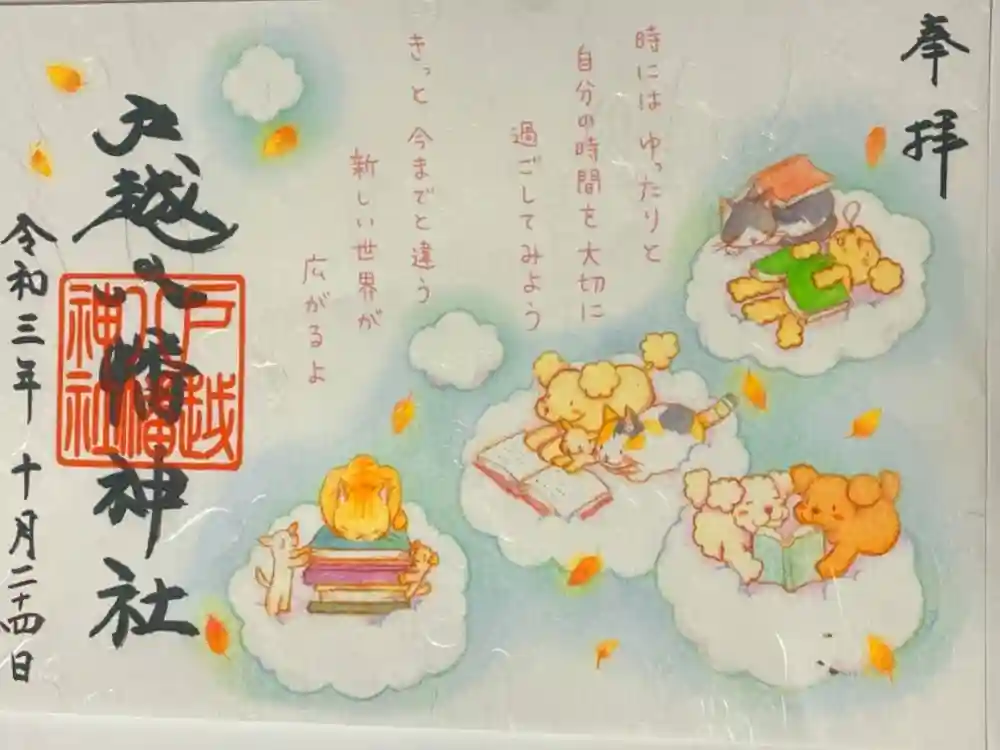 奉拝
時には ゆったりと
自分の時間を大切に
過ごしてみよう
きっと 今までと違う
新しい世界が
広がるよ
戸越八幡神社
戸越
八幡
神社
令和三年 十月二十四日